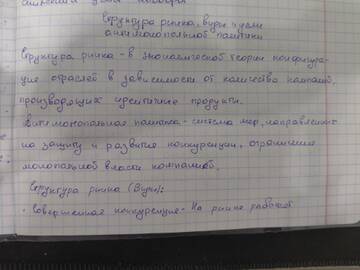 структура рынка, виды и цели
антимонопольной политики
Структура рынка - в экономической теории конфигура-
ция отраслей в зависимости от количества компаний,
производящих идентичные продукты.
Антимонопольная политика - система мер, направленных
на защиту и развитие конкуренции, ограничение
монопольной власти компаний.
Структура рынка (Виды):
• Совершенная конкуренция - На рынке работает